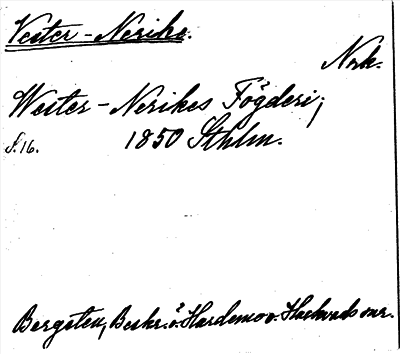 Vester-Nerike.
Nrk.
Wester-Nerikes Fögderi;
S. 16. 1850 Sthlm.
Bergsten, Beskr. ö. Hardemo o. Hackvads snr.